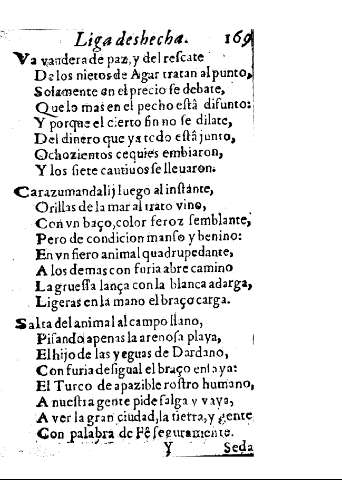 Liga deshecha. 169
Va vandera de paz, y del rescate
De los nietos de Agar tratan al punto,
Solamente en el precio se debate,
Que lo mas en el pecho está difunto:
Y porque el cierto fin no se dilate,
Del dinero que ya todo está junto,
Ochozientos cequies embiaron,
Y los siete cautiuos se lleuaron.
Carazumandalij luego al instante,
Orillas de la mar al trato vino,
Con vn baço, color feroz semblante,
Pero de condicion manso y benino:
En vn fiero animal quadrupedante,
A los demas con furia abre camino
La gruessa lança con la blanca adarga,
Ligeras en la mano el braço carga.
Salta del animal al campo llano,
Pisando apenas la arenosa playa,
El hijo de las yeguas de Dardano,
Con furia desigual el braço enlaya:
El Turco de apazible rostro humano,
A nuestra gente pide salga y vaya,
A ver la gran ciudad, la tierra, y gente
Con palabra de Fê seguramente.
Y Seda